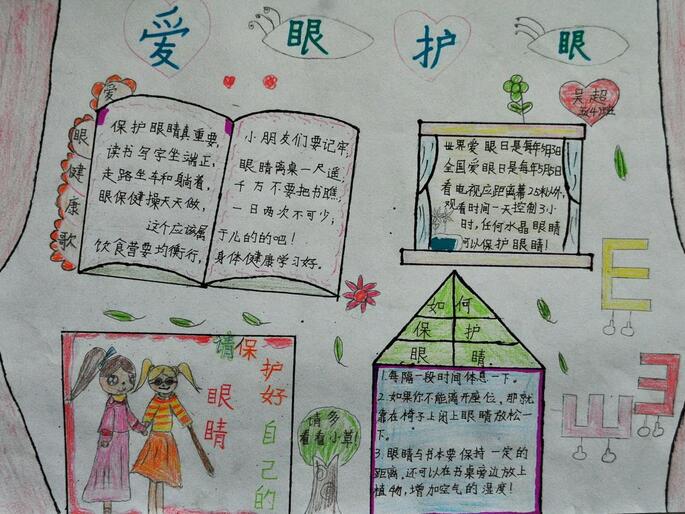 爱眼护眼
爱眼健康歌
保护眼睛真重要，
读书写字坐端正，
走路坐车和躺着，
眼保健操天天做，
这个应该属
饮食营要均衡行，
小朋友们要记牢，
眼睛离桌一尺遥，
千万不要把书瞧，
一日两次不可少，
于儿的的吧！
身体健康学习好。
吴超
五4班
世界爱眼日是每年
全国爱眼日是每年
看电视应距离幕2.5米以外，
观看时间一天控制3小
时，任何水晶眼睛
可以保护眼睛！
如何
保护
眼睛
1.每隔一段时间休息一下。
2.如果你不能离开座位，那就
靠在椅子上闭上眼睛放松一
下。
3.眼睛与书本要保持一定的
距离，还可以在书桌旁边放上
植物，增加空气的湿度！
请保护好自己的
眼睛
请多
看看小草！
E
E
E